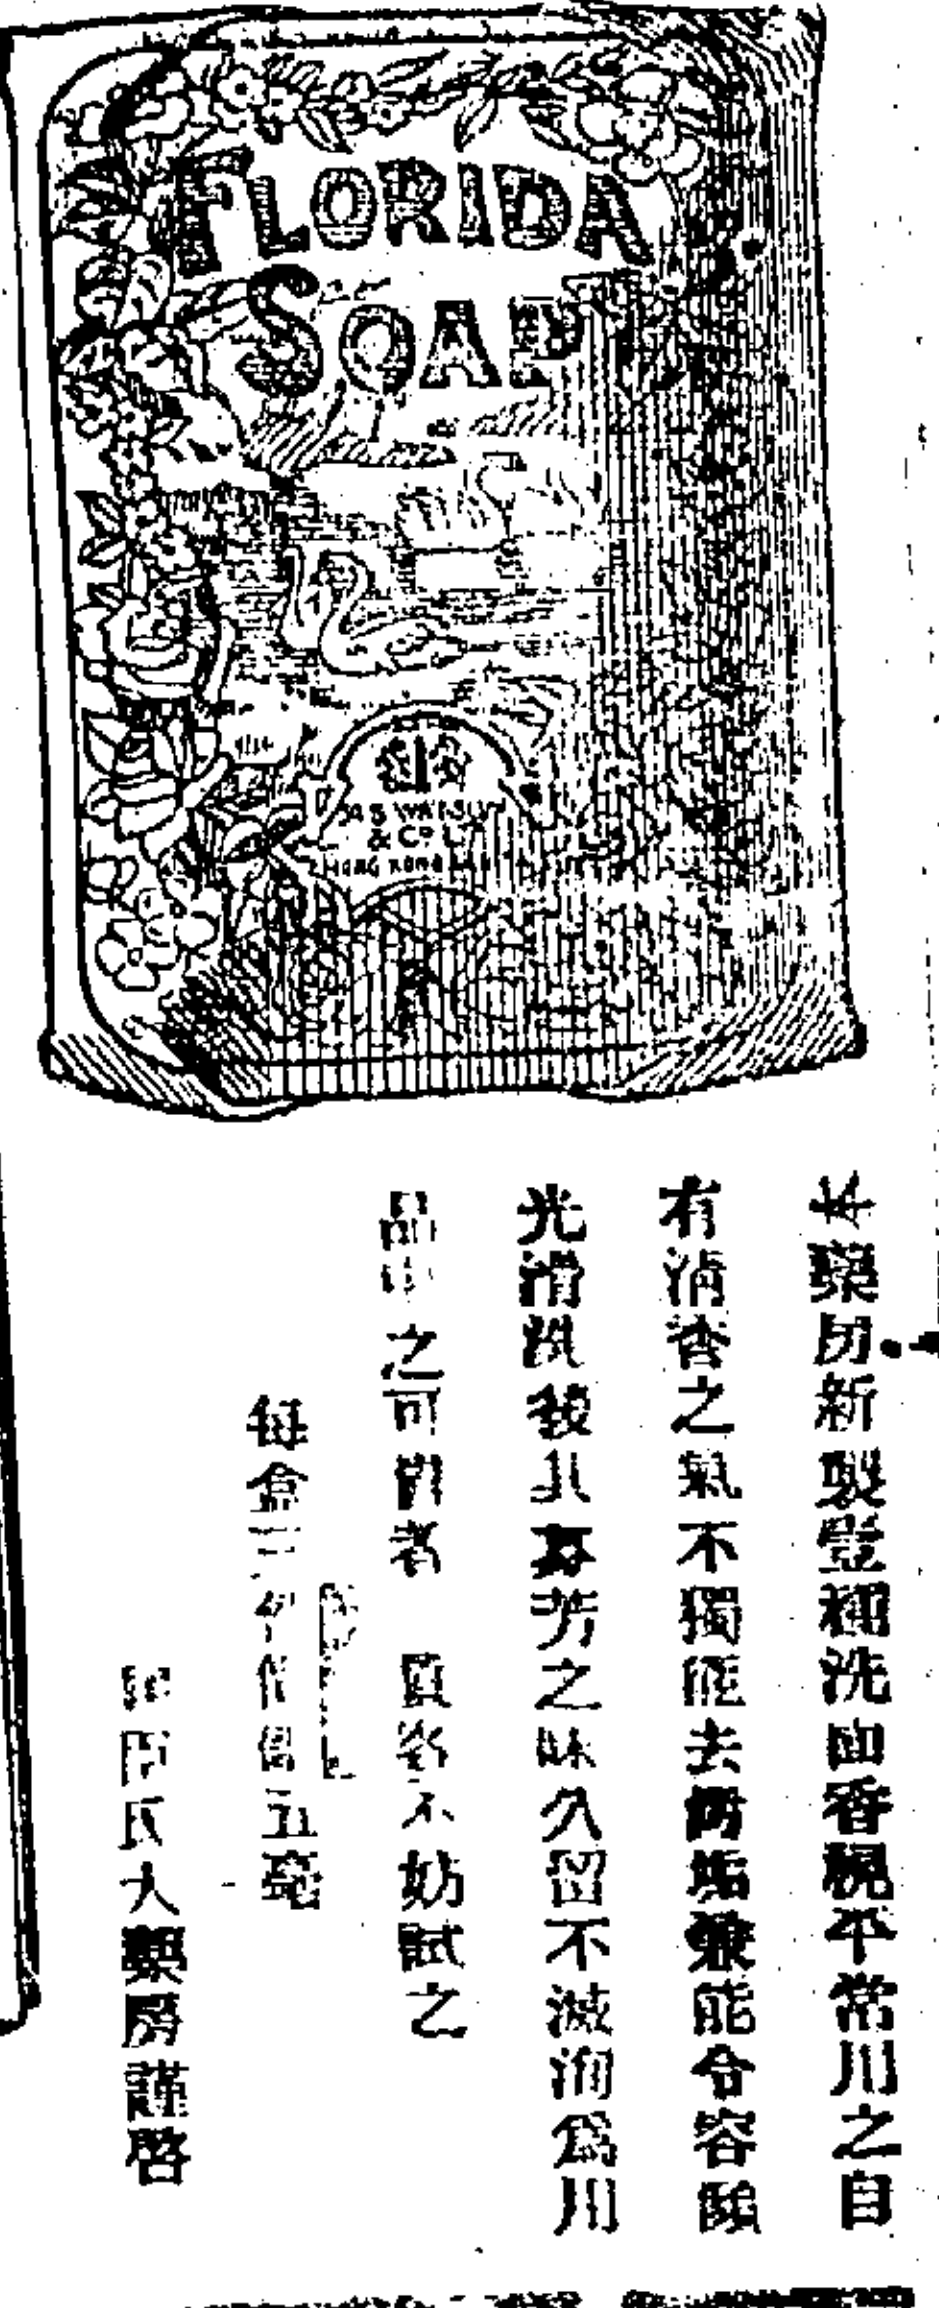 FLORIDA
SOAP
A S WATSON
& CO L
HONG KONG
藥房新製壹種洗面香梘平常用之自
有清香之氣不獨能去垢兼能令容顏
光滑洗後其芬芳之味久留不滅洵為用
品中之可貴者 貴客不妨試之
每盒三個五毫
臣氏大藥房謹啓